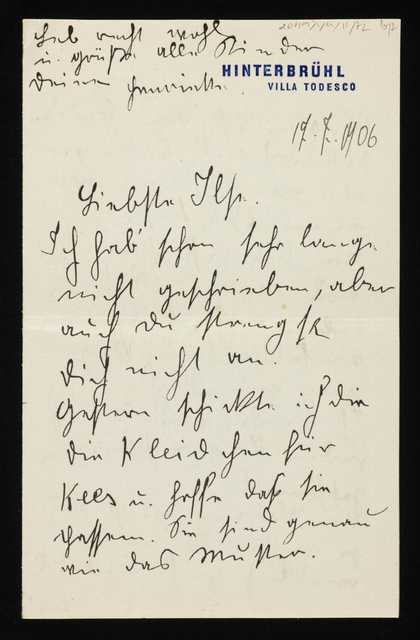 Leb recht wohl
u. grüße alle Kinder
Deine Henriette.
HINTERBRÜHL
VILLA TODESCO
17. 7. 1906
Liebste Ilse.
Ich hab' schon sehr lange
nicht geschrieben, aber
auch du strengst
dich nicht an.
Gestern schickte ich dir
die Kleidchen für
Kees u. hoffe daß sie
passen. Sie sind genau
wie das Muster.